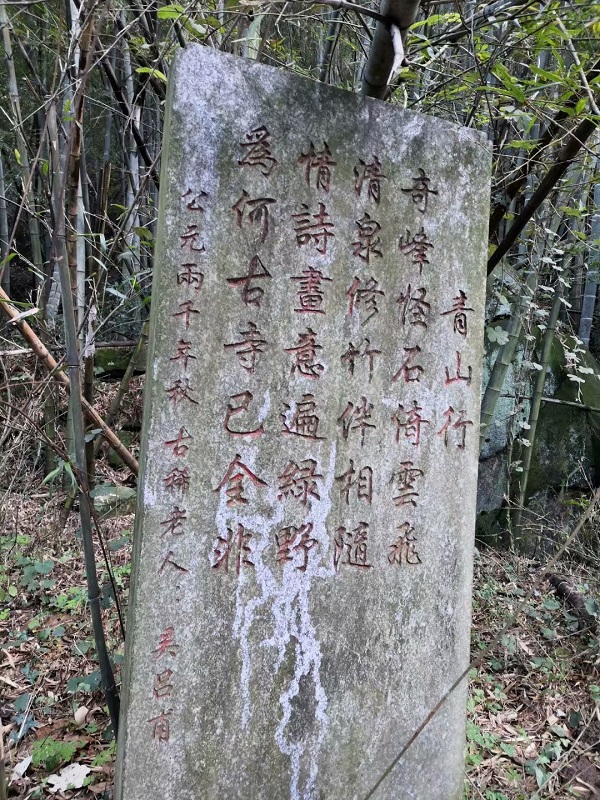 青山行
奇峰怪石倚雲飛
清泉修竹伴相隨
情詩畫意遍綠野
為何古寺已全非
公元兩千年秋古稀老人：吴吕甫